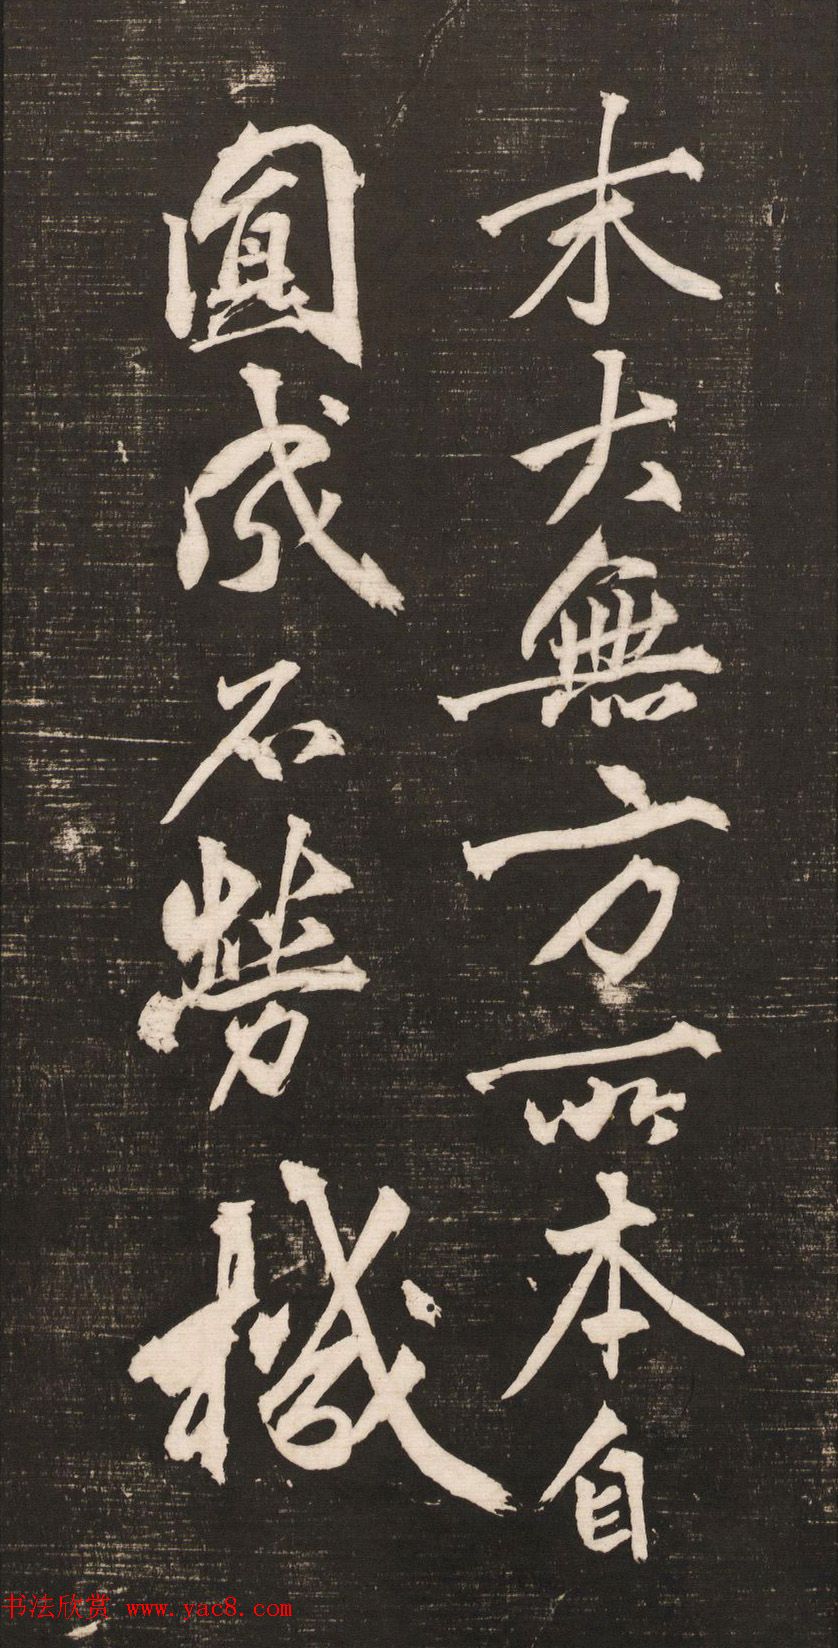 末大無方所本自
圓成不勞機
书法欣赏 www.yac8.com